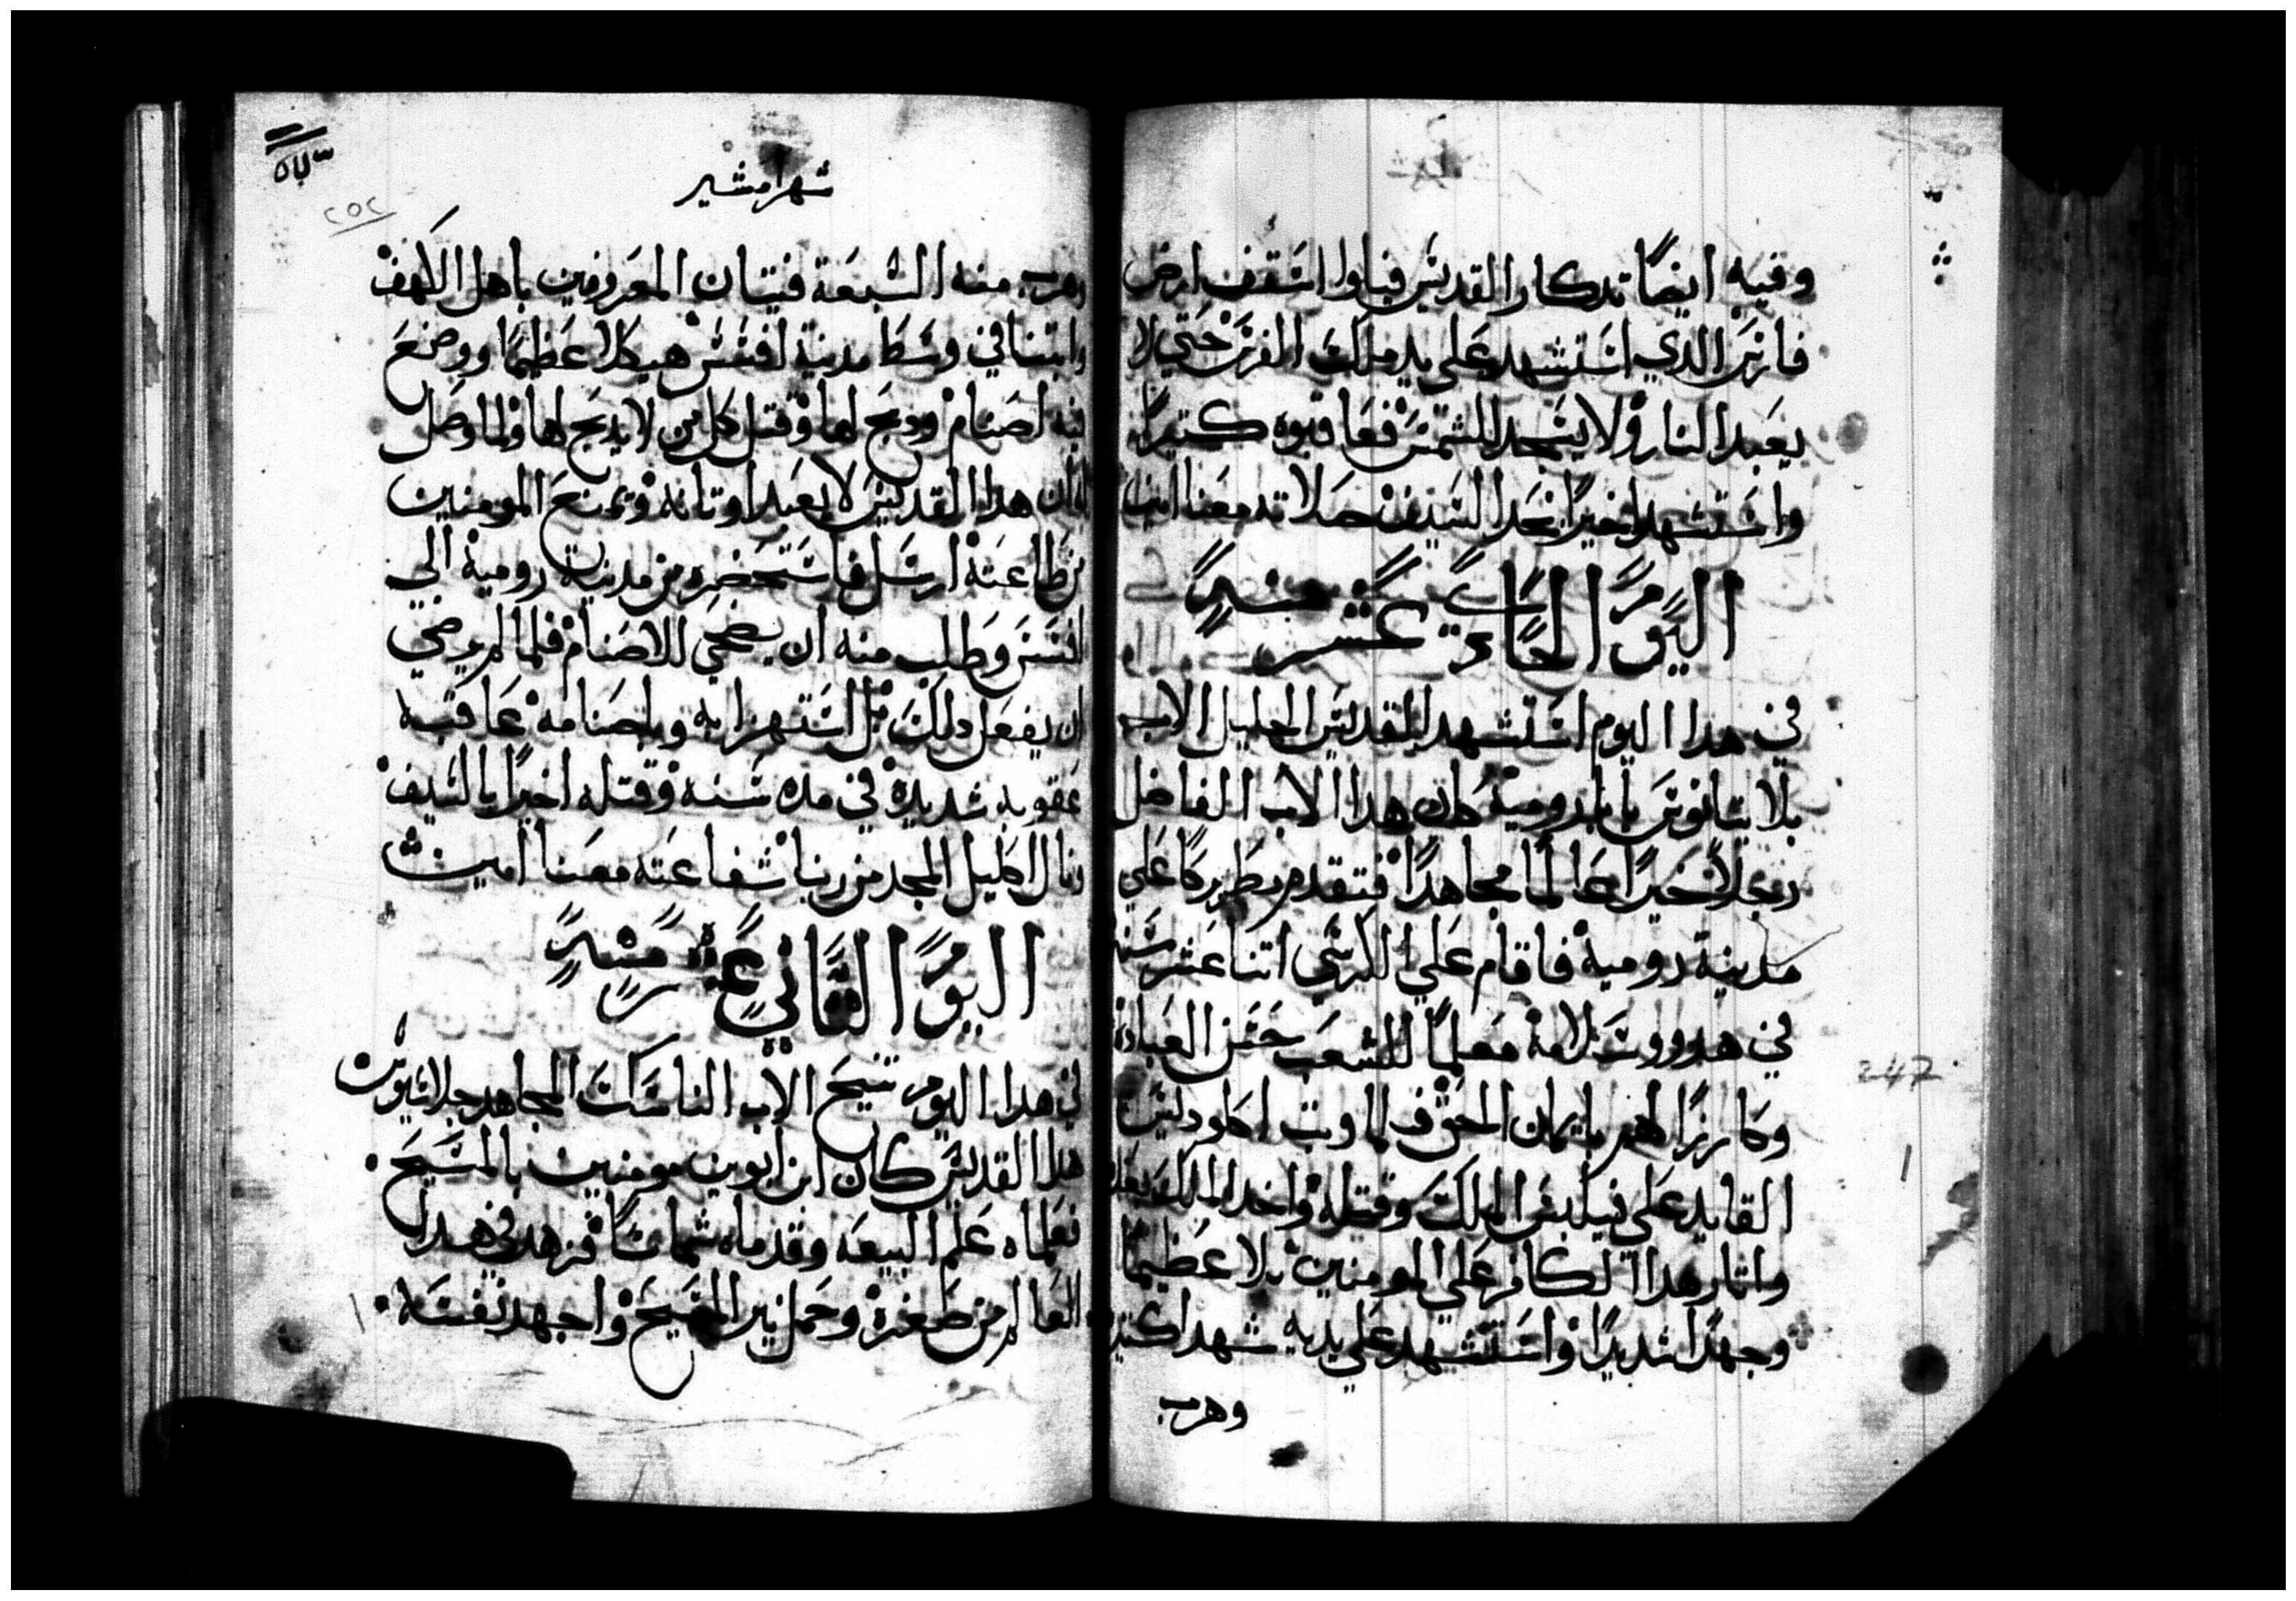 وفيه ايضًا تدكار القديس فباوا اسقف ارض
فارس الدي استشهد علي يد ملك الفرس حتي لا
يعبد النار ولا يسجد للشمس فعاقبوه كتيرًا
واستشهد اخيرًا بحد السيف صلاته معنا امين
اليوم الحادي عشر منه
في هدا اليوم استشهد القديس الجليل الاب
بلاتيانوس بابا رومية كان هدا الاب الفاضل
رجلًا خيرًا عالمًا مجاهدًا فتقدم بطريركًا علي
مدينة رومية فاقام علي الكرسي اتنا عشر سنه
في هدوو وسلامة معلمًا للشعب حسن العبادة
وكارزًا لهم بايمان الحق فلما وتب اكلوديس
القايد علي فيلبس الملك وقتله واخد المملكه
واتار هدا الكافر علي المومنين بلا عظيمًا
وجهدًا شديدًا واستشهد علي يديه شهدا كتير
وهرب
٢٥٢
شهر امشير
وهرب منه السبعة فتيان المعروفين باهل الكهف
وابتنا في وسط مدينة افسس هيكلا عظيمًا ووضع
فيه اصنام ودبح لها وقتل كل من لا يدبح لها ولما وصل
اليه ان هدا القديس لا يعبد اوتانه ويمنع المومنين
من طاعته ارسل فاستحضره من مدينة رومية الي
افسس وطلب منه ان يضحي للاصنام فلما لم يرضي
ان يفعل دلك بل استهزا به وباصنامه عاقبه
عقوبه شديدة في مده سنه وقتله اخيرًا بالسيف
ونال اكليل المجد من ربنا شفاعته معنا امين
اليوم التاني عشر منه
في هدا اليوم تنيح الاب الناسك المجاهد جلاسيوس
هدا القديس كان ابن ابوين مومنين بالمسيح
فعلماه علم البيعه وقدماه شماسًا فزهد في هدا
العالم من صغره وحمل نير المسيح واجهد نفسه
247